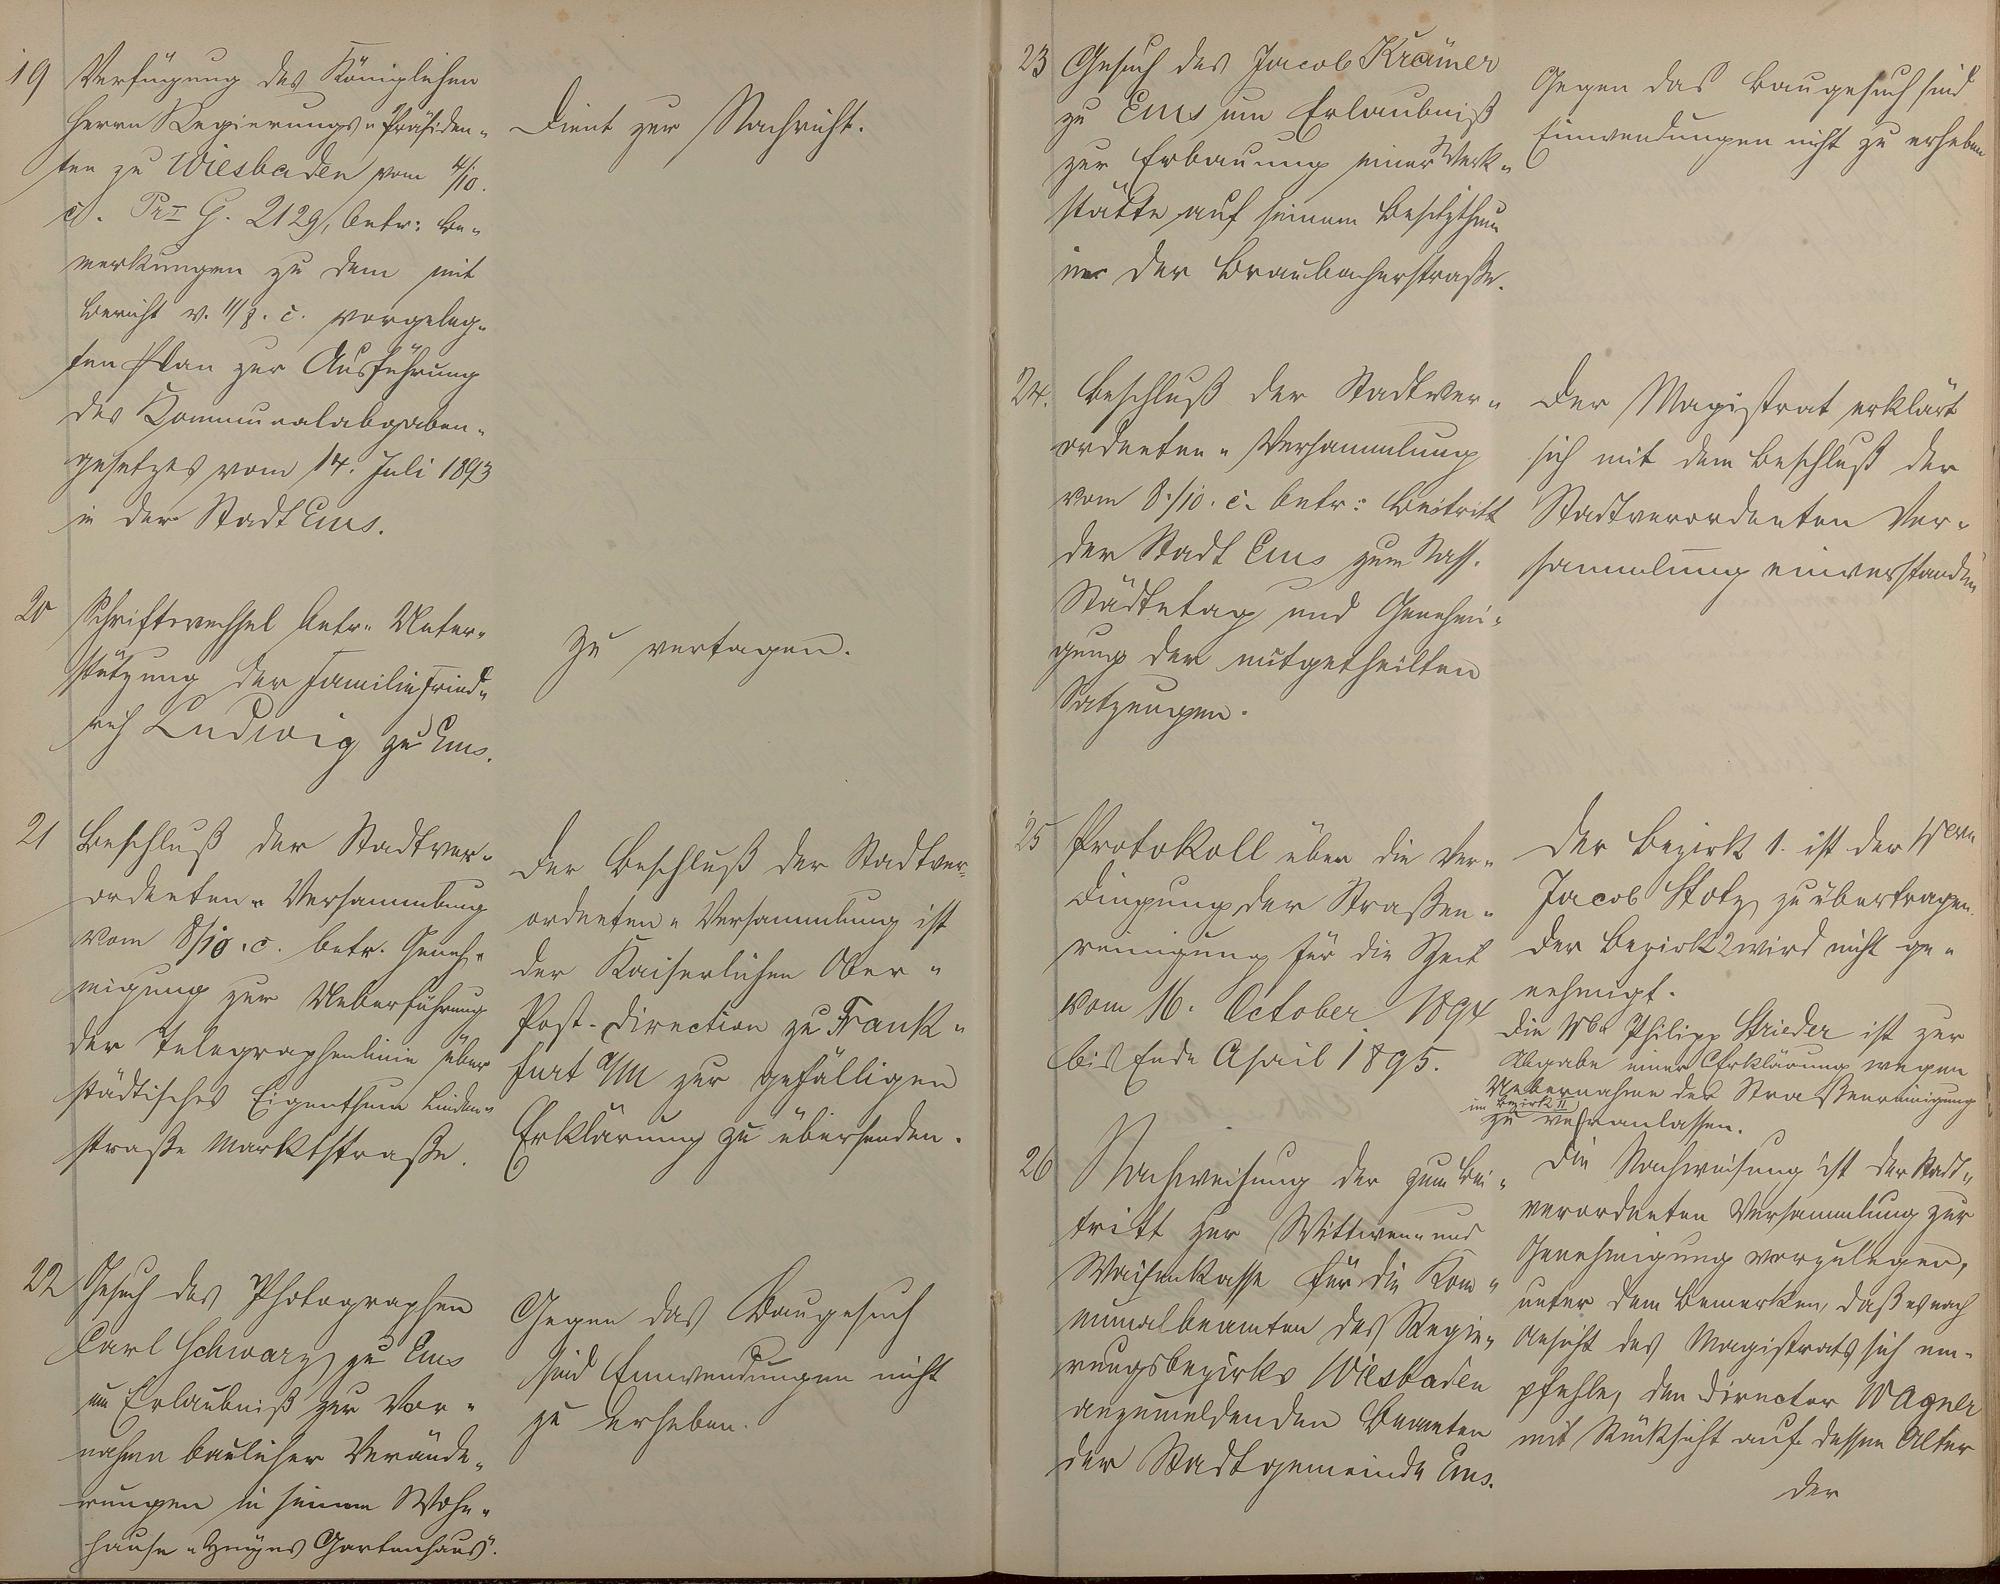 19 Verfügung des Königlichen
Herrn Regierungs-Präsiden-
ten zu Wiesbaden vom 4/10.
c. Pr I G. 2129, betr: Be-
merkungen zu dem mit
Bericht v. 11/8. c. vorgeleg-
ten Plan zur Ausführung
des Kommunalabgaben-
gesetzes vom 14. Juli 1893
in der Stadt Ems.
Dient zur Nachricht.
20 Schriftwechsel betr. Unter-
stützung der Familie Fried-
rich Ludwig zu Ems.
Zu vertagen.
21 Beschluß der Stadtver-
ordneten-Versammlung
vom 8/10. c. betr. Geneh-
migung zur Ueberführung
der Telegraphenlinie über
städtisches Eigenthum Linden-
straße Marktstraße.
Der Beschluß der Stadtver-
ordneten-Versammlung ist
der Kaiserlichen Ober-
Post-Direction zu Frank-
furt a/M zur gefälligen
Erklärung zu übersenden.
22 Gesuch des Photographen
Carl Schwarz zu Ems
um Erlaubniß zur Vor-
nahme baulicher Verände-
rungen in seinem Wohn-
hause „ Gartenhaus".
Gegen das Baugesuch
sind Einwendungen nicht
zu erheben.
23 Gesuch des Jacob Krämer
zu Ems um Erlaubniß
zur Erbauung einer Werk-
stätte auf seinem Besitzthum
in der Braubacherstraße.
Gegen das Baugesuch sind
Einwendungen nicht zu erheben
24. Beschluß der Stadtver-
ordneten-Versammlung
vom 8./10. c. betr: Beitritt
der Stadt Ems zum Nass.
Städtetag und Genehmi-
gung der mitgetheilten
Satzungen.
Der Magistrat erklärt
sich mit dem Beschluß der
Stadtverordneten Ver-
sammlung einverstanden
25 Protokoll über die Ver-
dingung der Straßen-
reinigung für die Zeit
vom 16. October 1894
bis Ende April 1895.
Der Bezirk 1. ist der Wwe
Jacob Stotz zu übertragen.
Der Bezirk 2 wird nicht ge-
nehmigt.
Die Wwe Philipp Strieder ist zur
Abgabe einer Erklärung wegen
Uebernahme der Straßenreinigung
im Bezirk II
zu veranlassen.
26 Nachweisung der zum Bei-
tritt zur Wittwen- und
Waisenkasse für die Kom-
munalbeamten des Regie-
rungsbezirks Wiesbaden
anzumeldenden Beamten
der Stadtgemeinde Ems.
Die Nachweisung ist der Stadt-
verordneten Versammlung zur
Genehmigung vorzulegen,
unter dem Bemerken, daß es nach
Ansicht des Magistrats sich em-
pfehle, den Director Wagner
mit Rücksicht auf dessen Alter
der